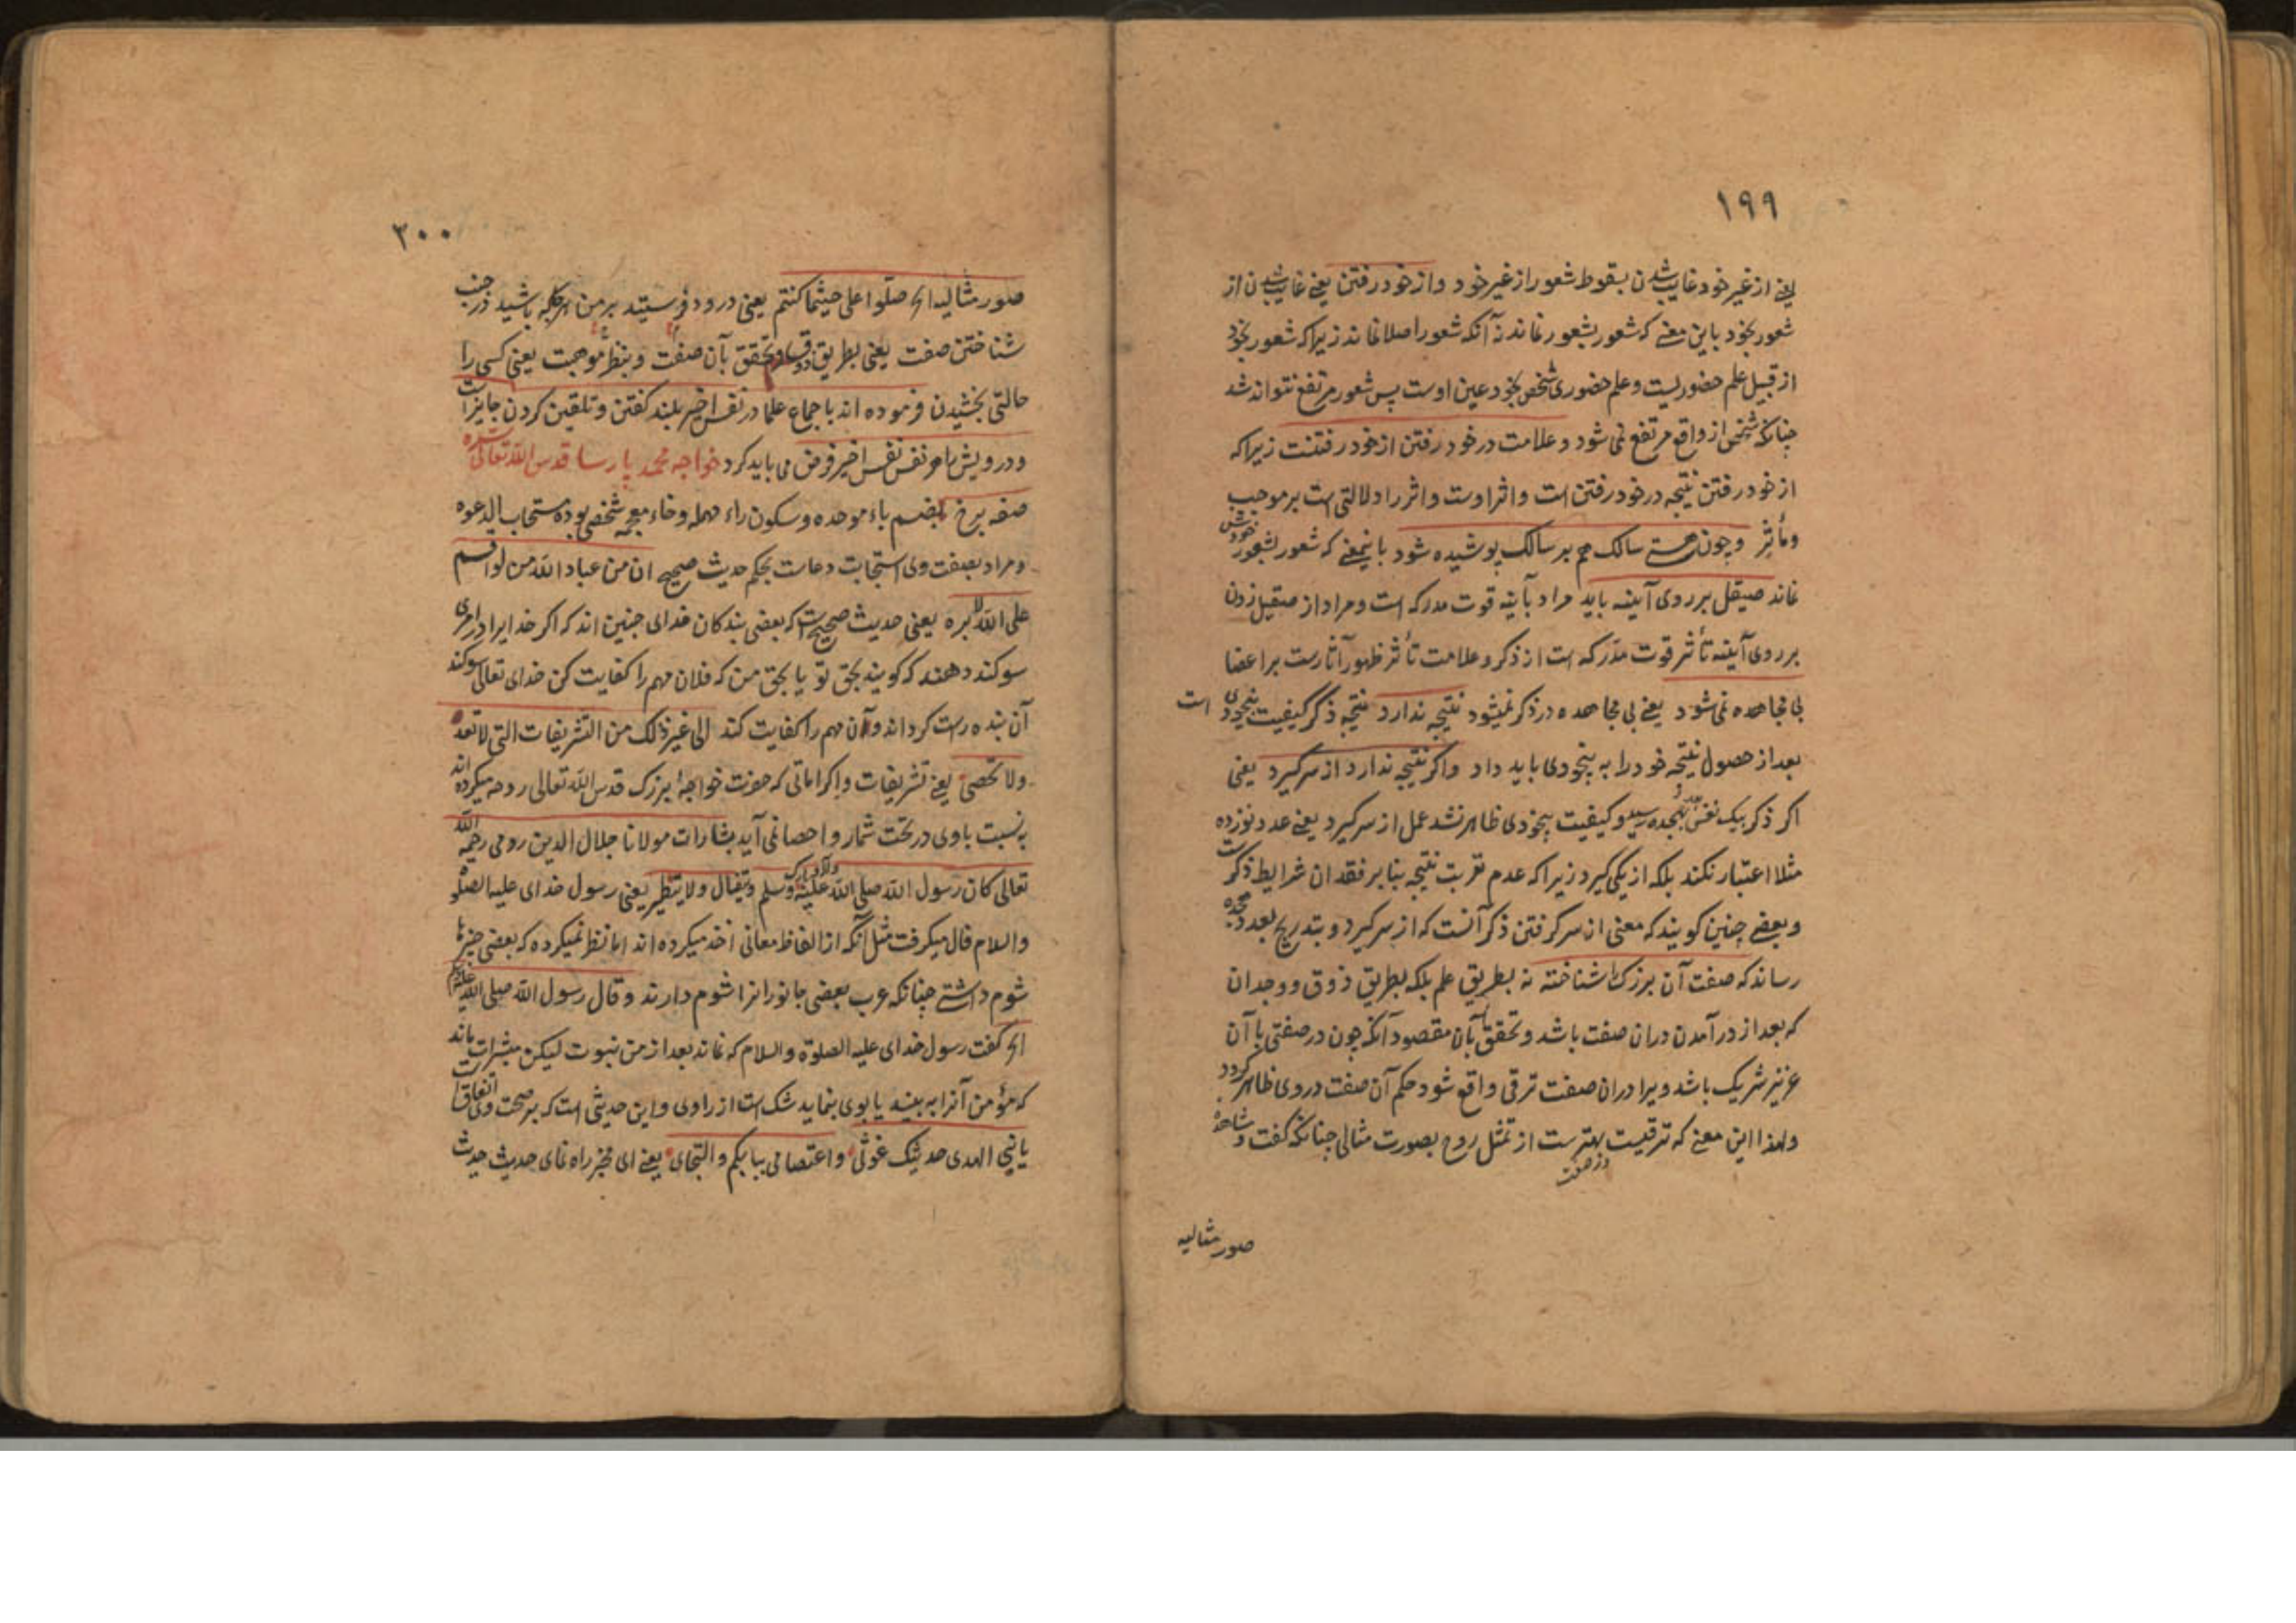 ۱۹۹
یعنی از غیر خود غایب شدن بسقوط شعور از غیر خود و از خود رفتن یعنی غایب شدن از
شعور بخود باین معنی که شعور بشعور نماند نه آنکه شعور اصلا نماند زیرا که شعور بخود
از قبیل علم حضوریست و علم حضوری شخص بخود عین اوست پس شعور مرتفع نتواند شد
چنانکه شخص از واقع مرتفع نمی شود و علامت در خود رفتن از خود رفتنست زیرا که
از خود رفتن نتیجه در خود رفتن است و اثر اوست و اثر را دلالتی است بر موجب
و مأثر و چون هستی سالک هم بر سالک پوشیده شود باینمعنی که شعور بشعور خودش
نماند صیقل بر روی آیینه باید مراد بآینه قوت مدرکه است و مراد از صیقل زدن
بر روی آیینه تأثر قوت مدرکه است از ذکر و علامت تأثر ظهور آثارست بر اعضا
بی مجاهده نمی شود یعنی بی مجاهده در ذکر نمیشود نتیجه ندارد نتیجه ذکر کیفیت بیخودی است
بعد از حصول نتیجه خود را به بیخودی باید داد واکر نتیجه ندارد از سرکیرد یعنی
اکر ذکر بیک نفس بهجده رسید و کیفیت بیخودی ظاهر نشد عمل از سرکیرد یعنی عدد نوزده
مثلا اعتبار نکند بلکه از یکی کیرد زیرا که عدم ترتب نتیجه بنا بر فقدان شرایط ذکرست
و بعضی چنین کویند که معنی از سر کرفتن ذکر آنست که از سرکیرد و بتدریج بعدد هجده
رساند که صفت آن بزرک را شناخته نه بطریق علم بلکه بطریق ذوق و وجدان
که بعد از در آمدن دران صفت باشد و تحقق بآن مقصود آنکه چون در صفتی با آن
عزیز شریک باشد ویرا دران صفت ترقی واقع شود حکم آن صفت در وی ظاهر کردد
ولهذا این معنی که ترقیست بهترست از تمثل روح بصورت مثالی چنانکه کفت و مشاهدهٔ
در صفت
صور مثالیه
۲۰۰
صور مثالیه الخ صلّوا علی حیثما کنتم یعنی درود فرستید بر من هر جا که باشید در جنب
شناختن صفت یعنی بطریق ذوق و تحقق بآن صفت و بنظر موهبت یعنی کسی را
حالتی بخشیدن فرموده اند باجماع علما در نفس اخیر بلند کفتن و تلقین کردن جایز است
و درویش را هر نفس نفس اخیر فرض می باید کرد خواجه محمد پارسا قدس الله تعالی سره
صفه برخ بضم باء موحده و سکون راء مهمله وخاء معجمه شخصی بوده مستجاب الدعوه
و مراد بصفت وی استجابت دعاست بحکم حدیث صحیح ان من عباد الله من لو اقسم
علی الله لابره یعنی حدیث صحیح است که بعضی بندکان خدای چنین اند که اکر خدایرا در امری
سوکند دهند که کویند بحق تو یا بحق من که فلان مهم را کفایت کن خدای تعالی سوکند
آن بنده راست کرداند و آن مهم را کفایت کند الی غیر ذلک من التشریفات التی لا تعد
ولا تحصی یعنی تشریفات و اکراماتی که حضرت خواجهٔ بزرک قدس الله تعالی روحه میکرده اند
به نسبت باوی در تحت شمار و احصا نمی آید بشارات مولانا جلال الدین رومی رحمه الله
تعالی کان رسول الله صلی الله علیه وسلم یتفال ولا یتطیر یعنی رسول خدای علیه الصلوة
والسلام فال میکرفت مثل آنکه از الفاظ معانی اخذ میکرده اند اما تطیر نمیکرده که بعضی چیزها
شوم داشتی چنانکه عرب بعضی جانورانرا شوم دارند وقال رسول الله صلی الله علیه وسلم
الخ کفت رسول خدای علیه الصلوة والسلام که نماند بعد از من نبوت لیکن مبشرات ماند
که مؤمن آنرا به بیند یا بوی بنماید شک است از راوی و این حدیثی است که بر صحت وی اتفاق است
یا نبی الهدی حدیثک غوثی واعتصامی ببابکم والتجای یعنی ای مخبر راه نمای حدیث حدیث